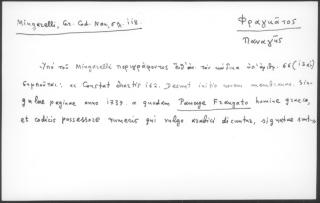 Mingarelli, Gr. Cod. Nan, σελ. 118.
Φραγκᾶτος
Παναγῆς
Ὑπὸ τοῦ Mingarelli περιγράφοντος τὸν κώδικα ὑπ' ἀριθ. 66
σημειοῦται: "Constat chartis 162. Desunt initio novem membranae. Sin-
gulae paginae anno 1739. a quodam Panage Frangato homine graeco,
et codicis possessore numeris qui vulgo arabici dicuntur, signatae sunt.